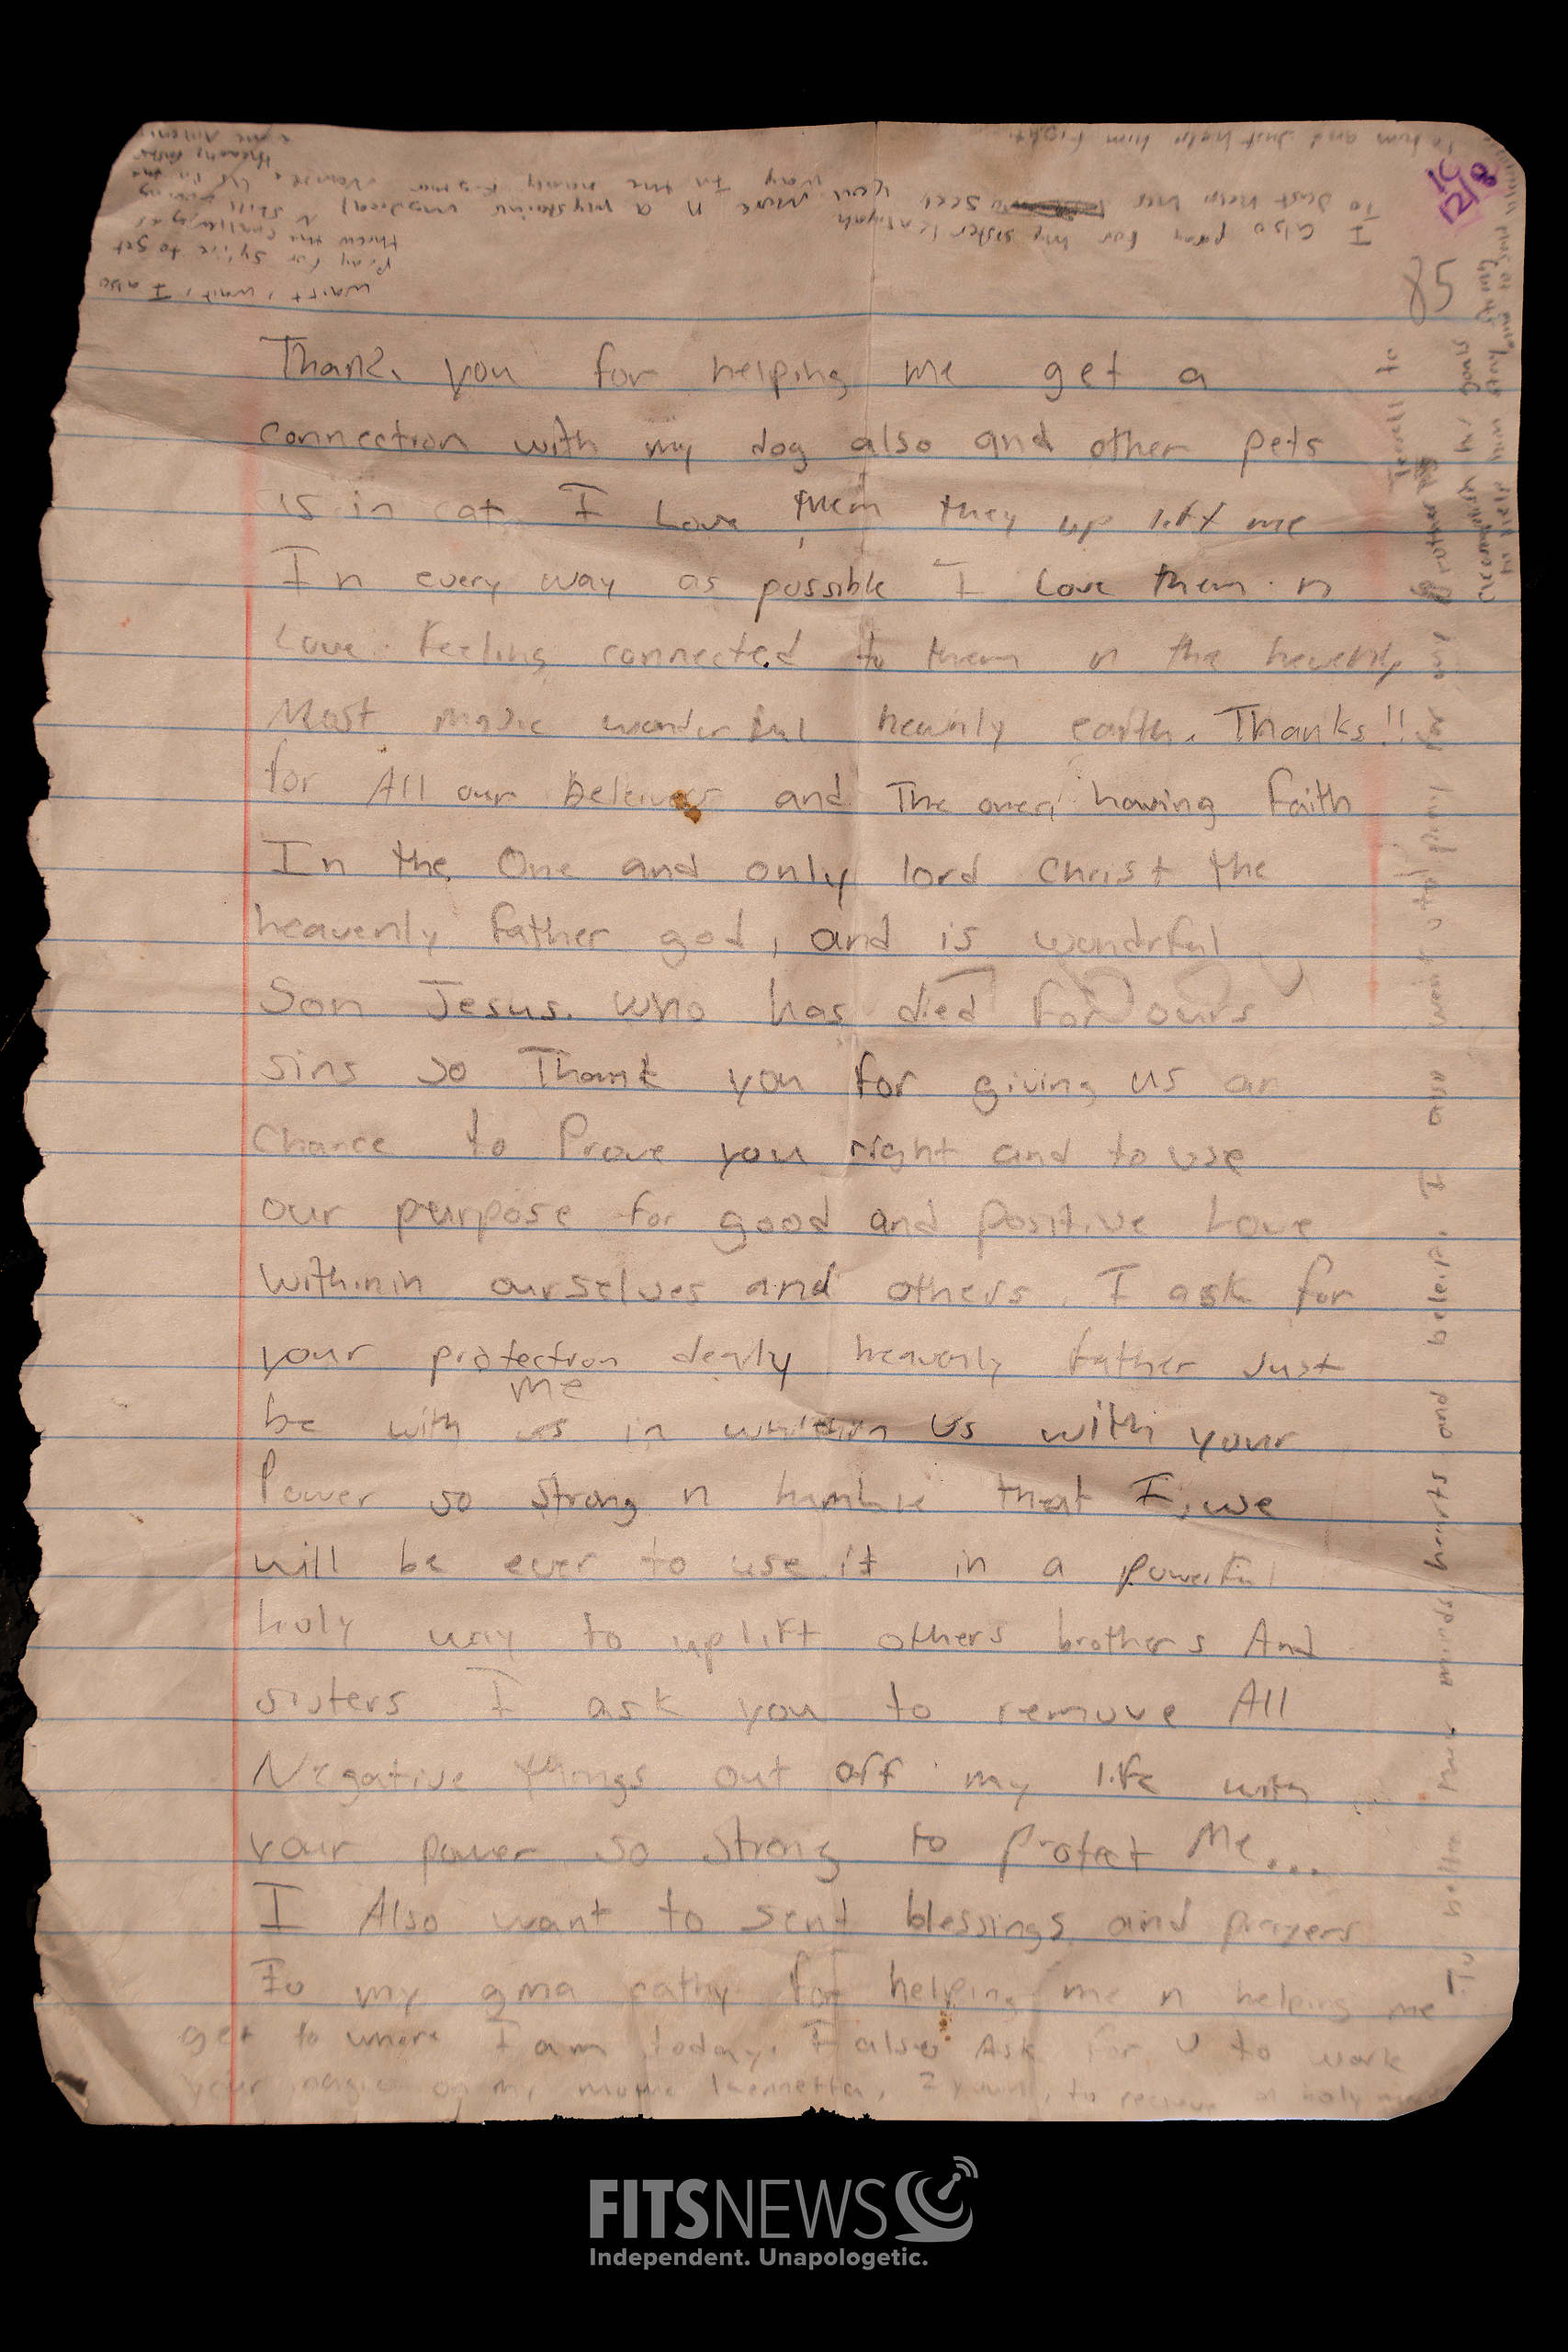 Thank you for helping me get a
connection with my dog also and other pets
is in cat I Love them they up lift me
In every way as possible I Love them n
Love feeling connected to them n the hevenly
Most magic wonderful heavnly earth. Thanks!!
for All our beleivers and The ones having faith
In the One and only lord Christ the
heavenly father god, and is wondrful
Son Jesus. Who has died for ours
sins so Thank you for giving us an
Chance to Prove you right and to use
our purpose for good and positive Love
Withinin ourselves and others. I ask for
your protection dearly heavenly father Just
me
be with us in us with your
Power so strong n humble that I, we
will be ever to use it in a powerful
holy way to uplift others brothers And
sisters I ask you to remove All
Negative things out off my life with
your power so strong to protect Me...
I Also want to sent blessings and prayers
To my gma cathy for helping me n helping me
get to where I am today. I also Ask for U to work
your magic on my to recieve a holy
To better minds, hearts and beleifs. I also want to pray for my Brother
Terrell to
accomplish his goals
to help him stay
I also pray for my sister
To Just help her to see
way In the
To him and Just help him fight
waist, wait, I also
Pray for Sylvie to get
threw this
85
1C
12/8
FITSNEWS
Independent. Unapologetic.